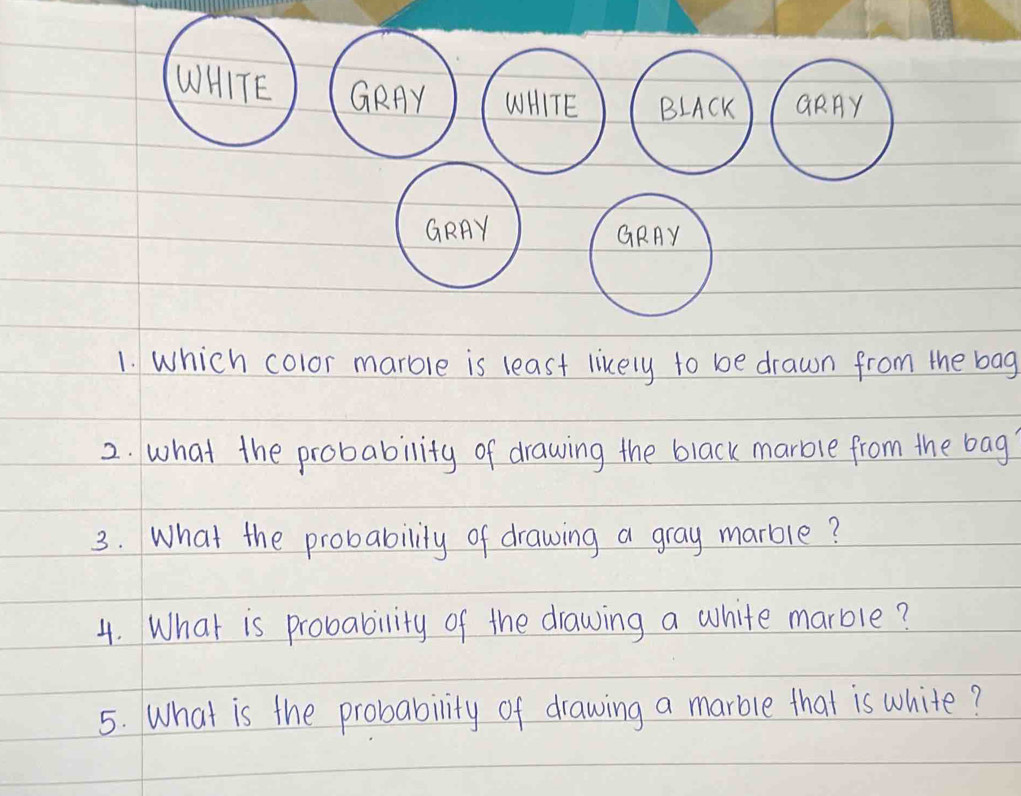 WHITE GRAY WHITE BLACK GRAY
GRAY GRAY
1. Which color marble is least likely to be drawn from the bag
2. What the probability of drawing the black marble from the bag?
3. What the probability of drawing a gray marble?
4. What is probability of the drawing a white marble?
5. What is the probability of drawing a marble that is white?